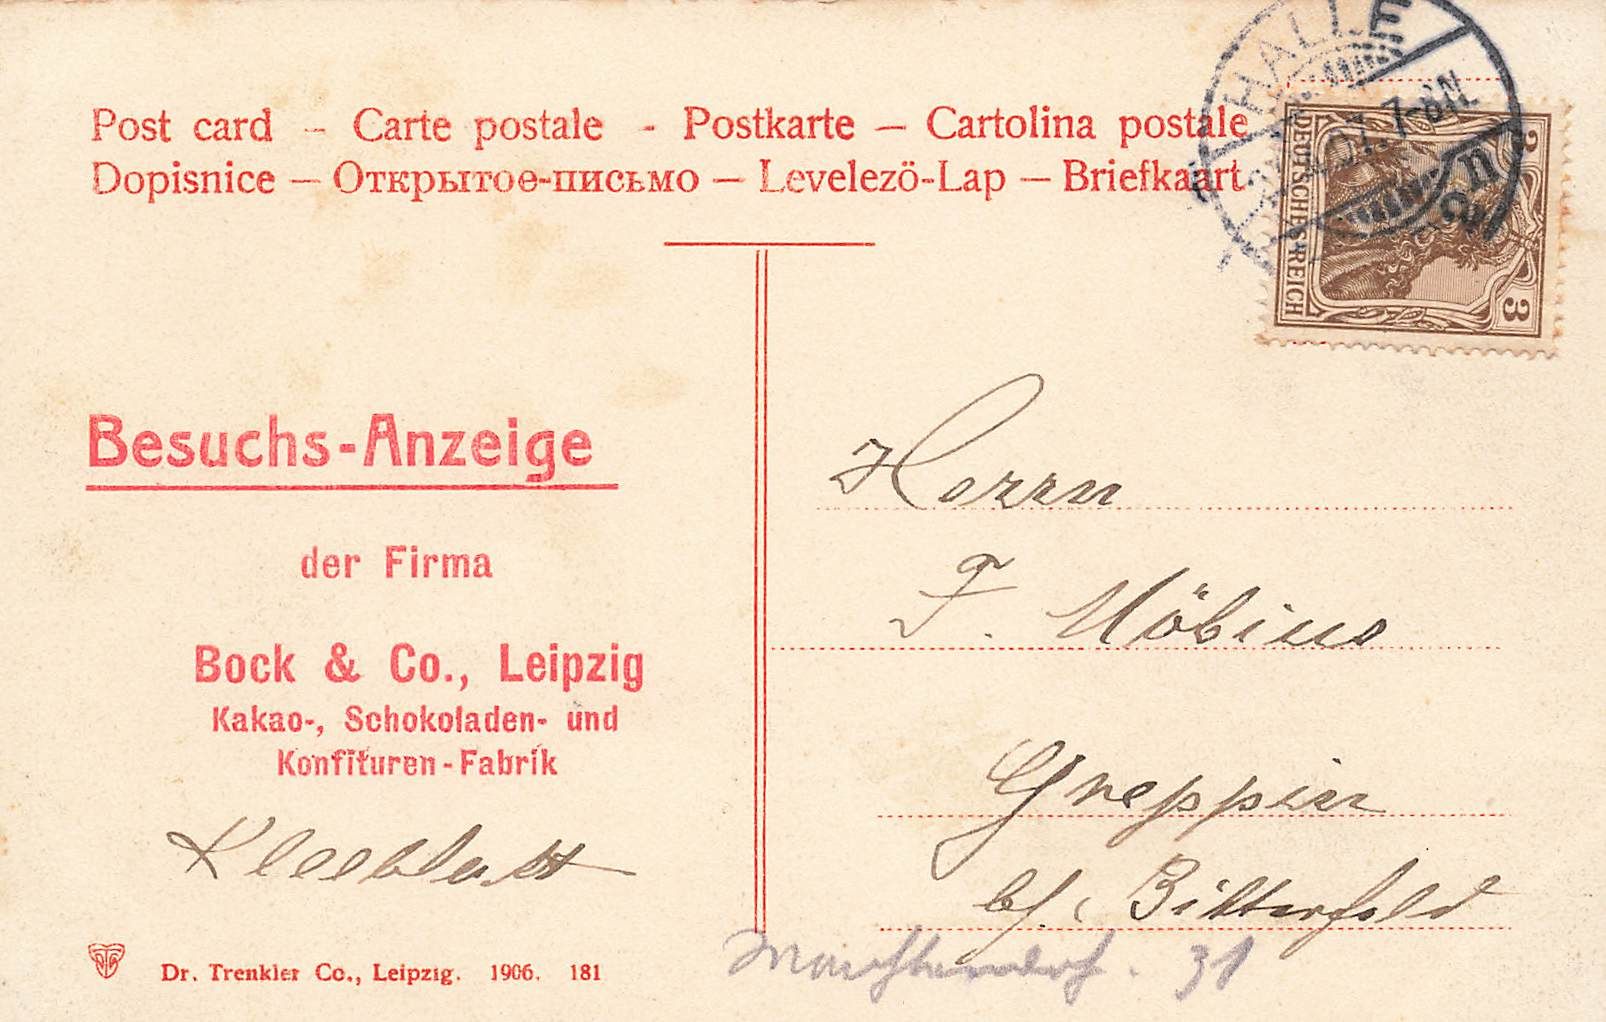 Post card – Carte postale - Postkarte – Cartolina postale
Dopisnice – Открытое-письмо – Levelezö-Lap – Briefkaart.
HALLE
07. 7-8N.
DEUTSCHES REICH
3
3
Besuchs-Anzeige
der Firma
Bock & Co., Leipzig
Kakao-, Schokoladen- und
Konfituren-Fabrik
Kleeblatt
Herrn
F. Möbius
Greppin
b/. Bitterfeld
31
Dr. Trenkler Co., Leipzig. 1906. 181